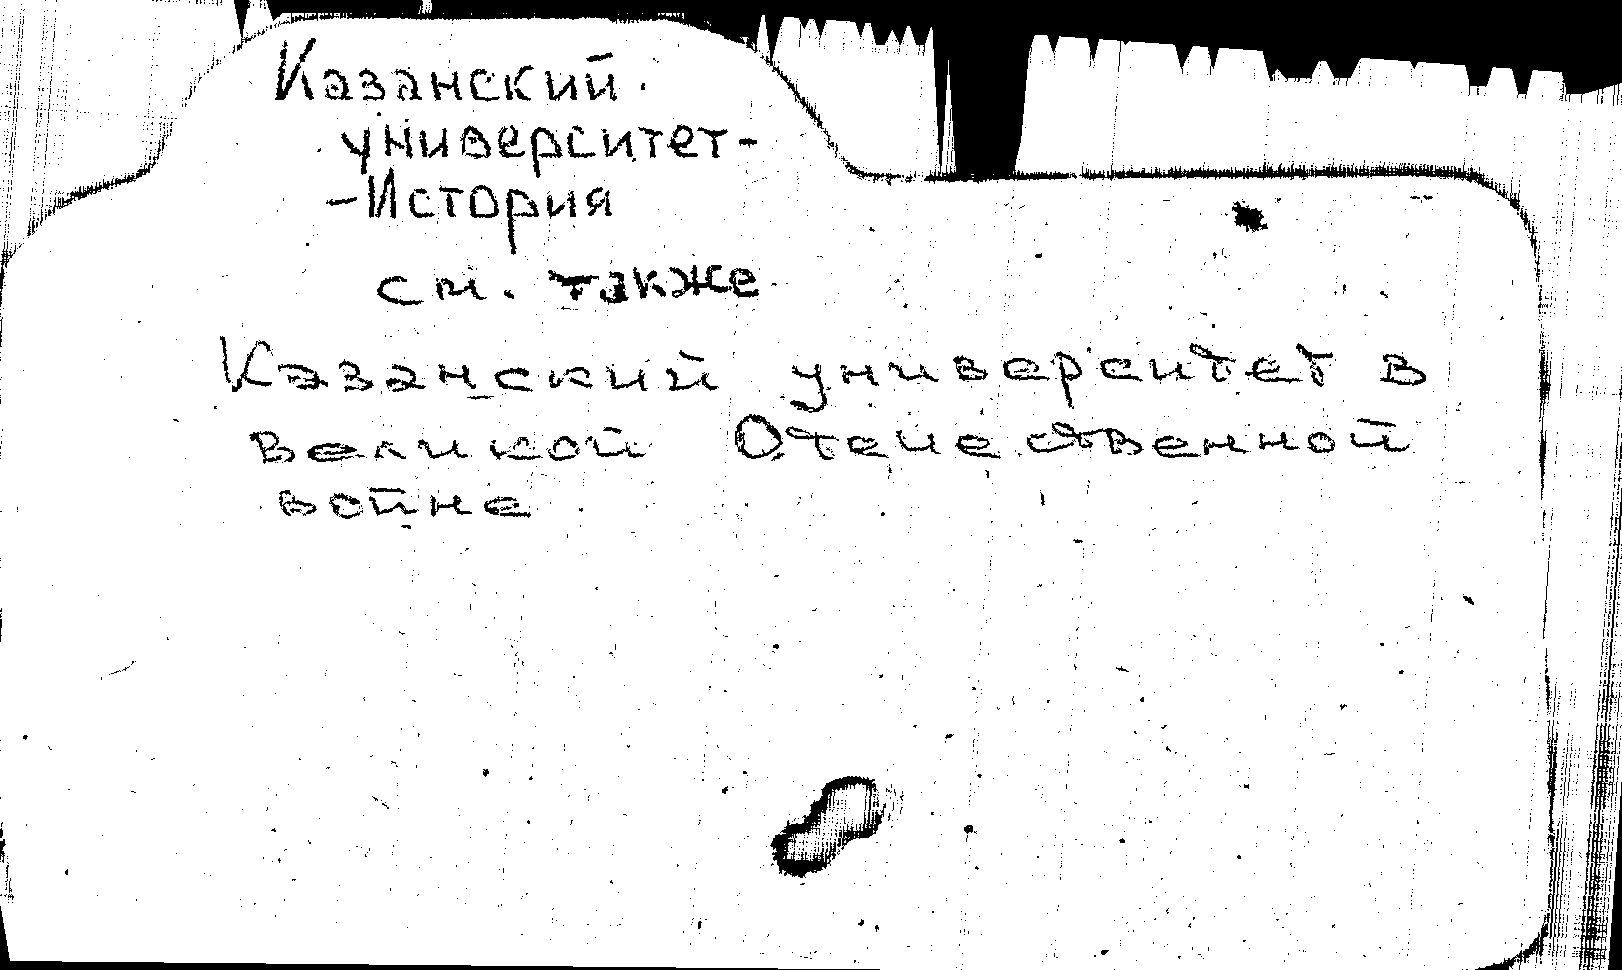 Казанский
университет-
-История
см. также
Казанский университет в
Великой Отечественной
войне